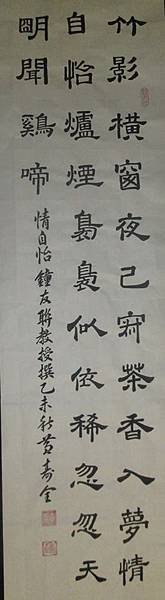 竹影橫窗夜已寂茶香入夢情
自怡爐煙裊裊似依稀忽忽天
明聞鷄啼
情自怡 鐘友聯教授撰乙未秋黃壽全